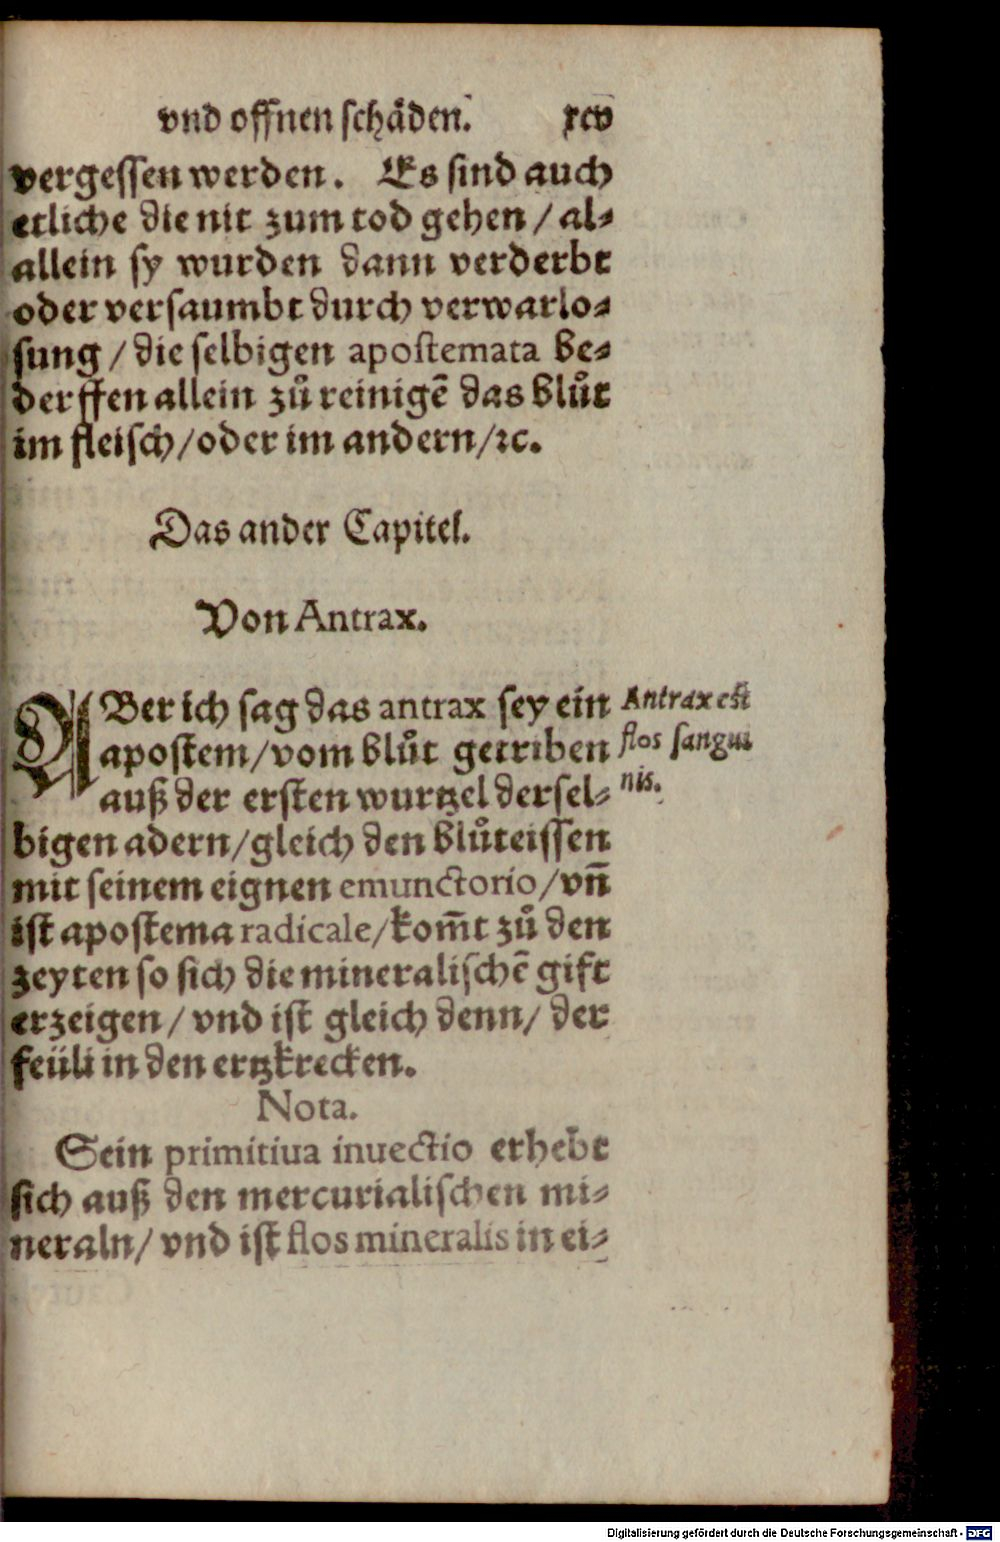 vnd offnen schåden. xcv
vergessen werden. Es sind auch
etliche die nit zum tod gehen / al⸗
allein sy wurden dann verderbt
oder versaumbt durch verwarlo⸗
sung / die selbigen apostemata be⸗
derffen allein zů reinigē das blůt
im fleisch/oder im andern/ꝛc.
Das ander Capitel.
Von Antrax.
ABer ich sag das antrax sey ein
apostem/vom blůt getriben
auß der ersten wurtzel dersel⸗
bigen adern/gleich den blůteissen
mit seinem eignen emunctorio/vñ
ist apostema radicale/kom̃t zů den
zeyten so sich die mineralischē gift
erzeigen/ vnd ist gleich denn/ der
feüli in den ertzkrecken.
Nota.
Sein primitiua inuectio erhebt
sich auß den mercurialischen mi⸗
neraln/ vnd ist flos mineralis in ei⸗
Antrax est
flos sangui
nis.
Digitalisierung gefördert durch die Deutsche Forschungsgemeinschaft - DFG